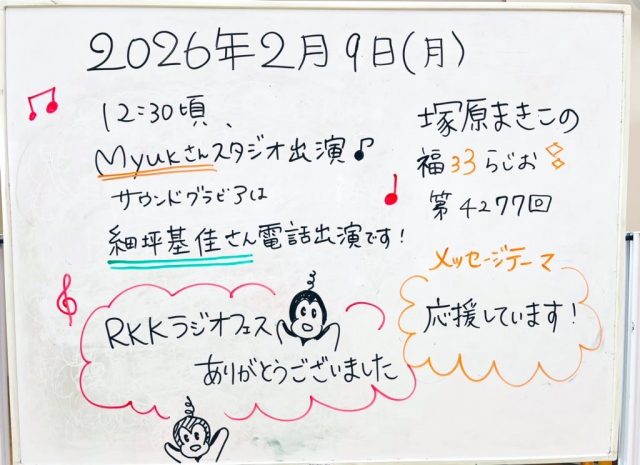 2026年2月9日(月)
12:30頃、
Myukさんスタジオ出演♪
サウンドグラビアは
細坪基佳さん電話出演です!
塚原まきこの
福33らじお
第4277回
メッセージテーマ
応援しています!
RKKラジオフェス
ありがとうございました